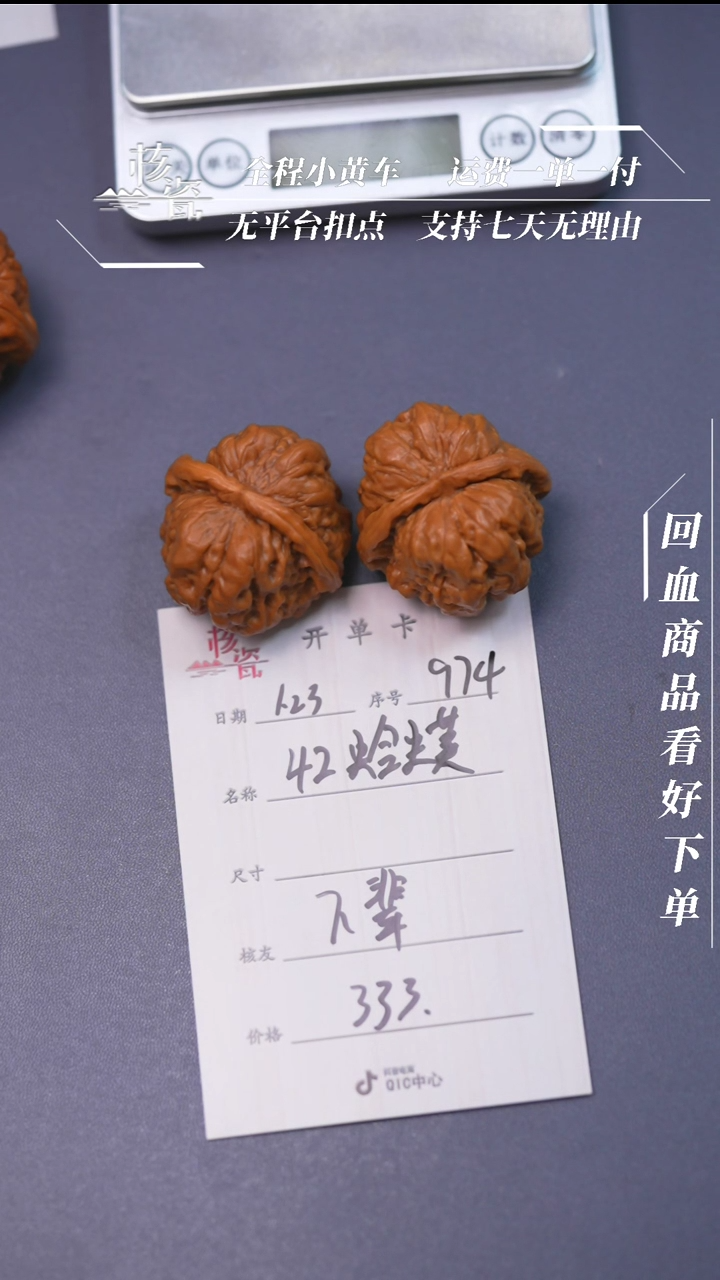 单位
计数
清零
核瓷
全程小黄车 运费一单一付
无平台扣点 支持七天无理由
回血商品看好下单
核瓷 开单卡
日期 1.23 序号 974
名称 42蛤蟆
尺寸
核友 下辈
价格 333.
抖音电商
QIC中心